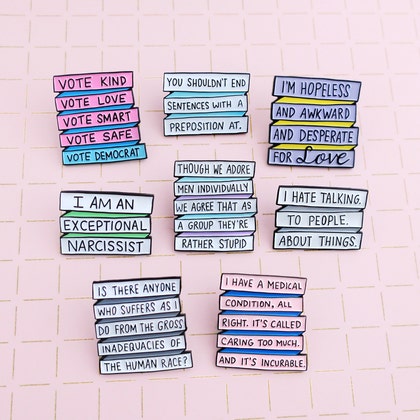 VOTE KIND
VOTE LOVE
VOTE SMART
VOTE SAFE
VOTE DEMOCRAT
YOU SHOULDN'T END
SENTENCES WITH A
PREPOSITION AT.
I'M HOPELESS
AND AWKWARD
AND DESPERATE
FOR Love
I AM AN
EXCEPTIONAL
NARCISSIST
THOUGH WE ADORE
MEN INDIVIDUALLY
WE AGREE THAT AS
A GROUP THEY'RE
RATHER STUPID
I HATE TALKING.
TO PEOPLE.
ABOUT THINGS.
IS THERE ANYONE
WHO SUFFERS AS I
DO FROM THE GROSS
INADEQUACIES OF
THE HUMAN RACE?
I HAVE A MEDICAL
CONDITION, ALL
RIGHT. IT'S CALLED
CARING TOO MUCH.
AND IT'S INCURABLE.